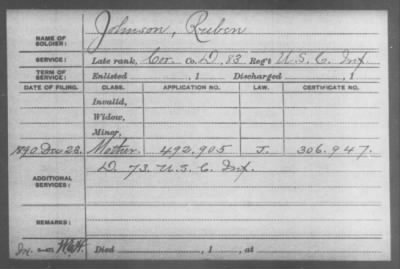 NAME OF SOLDIER: Johnson, Ruben
SERVICE: Late rank, Cor. Co. D, 83 Reg't U.S.C. Inf.
TERM OF SERVICE: Enlisted , 1 Discharged , 1
DATE OF FILING. CLASS. APPLICATION NO. LAW. CERTIFICATE NO.
Invalid,
Widow,
Minor,
1890 Dec 26. Mother. 492,905 J. 306,947.
ADDITIONAL SERVICES: D. 73. U.S.C. Inf.
REMARKS:
Died , 1 , at